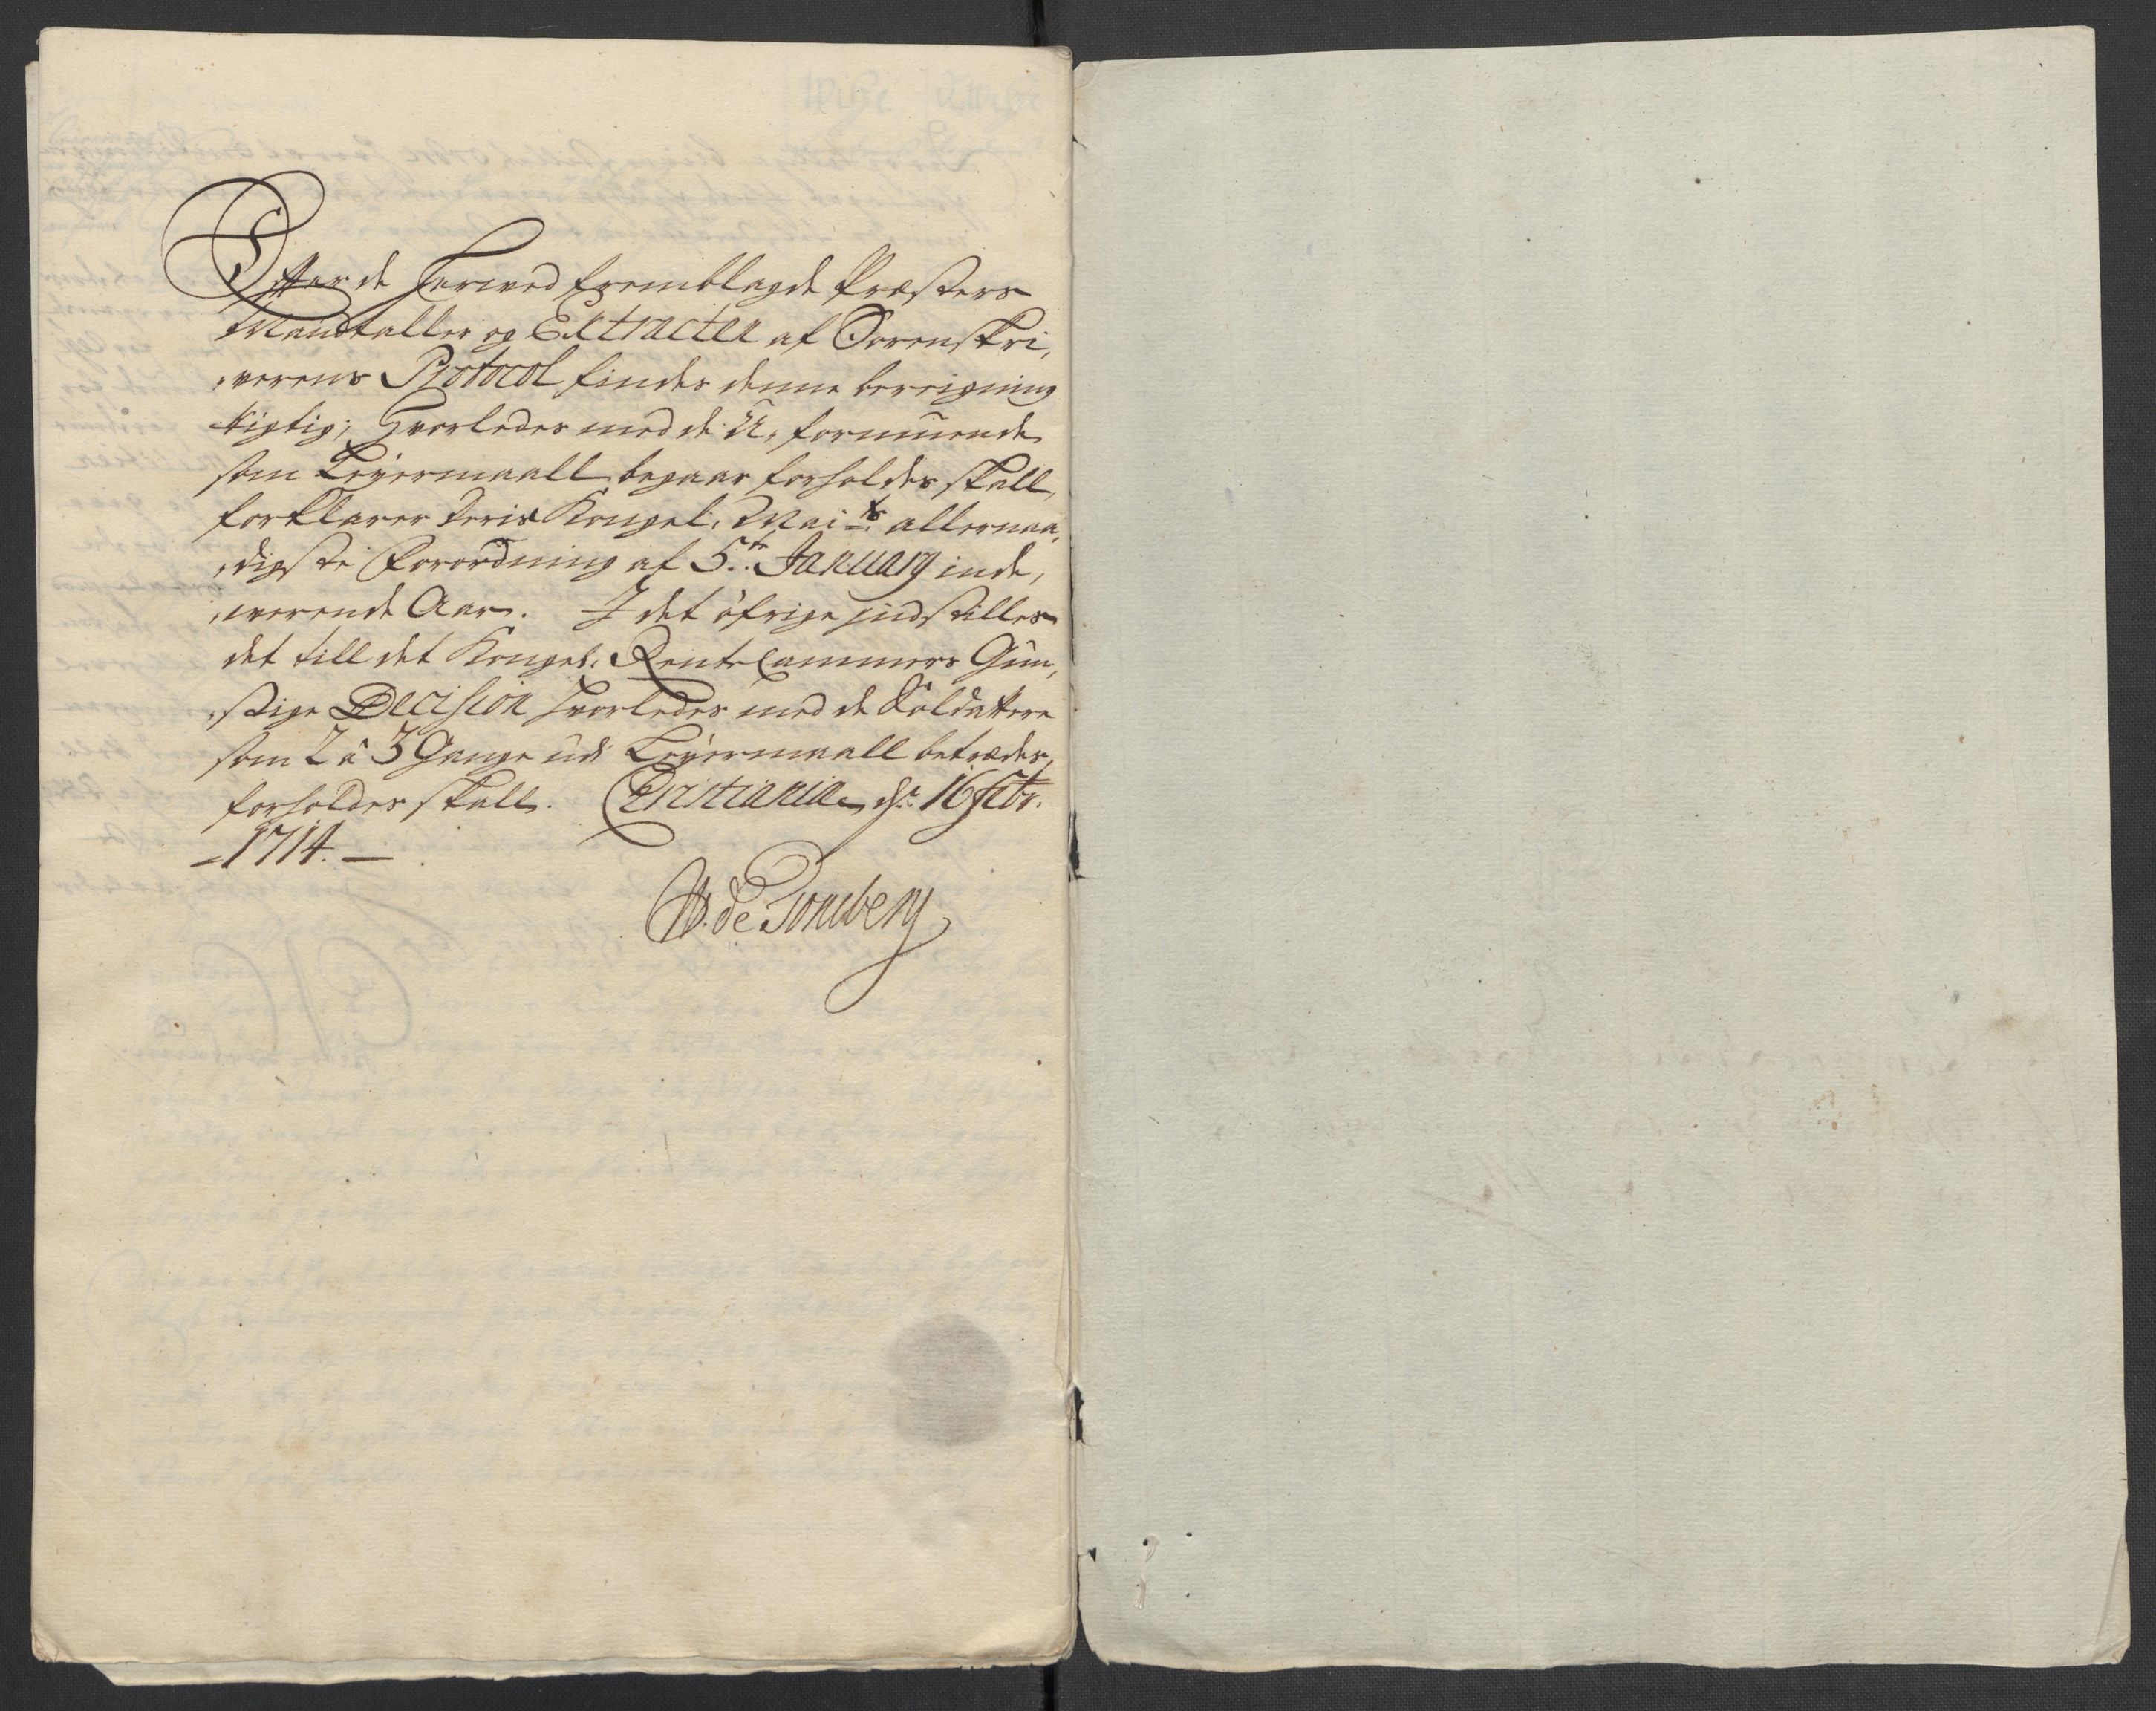 Efter de herved fremblagde Præsters
Mandtaller og Extracter af Sorenskri,
,verens Protocol findes denne bereigning
rigtig; Hvorledes med de U,formuende
som Leyermaall begaar forholdes skall,
forklarer Deris Kongel. Mai:ts allernaa,
,digste Forordning af 5te January inde,
,werende Aar. I det öfrige indstilles
det till det Kongel. RenteCammers Gün,
,stige Decision hvorledes med de Soldattere
som 2 à 3 Gange udi Leyermaall betrædes,
forholdes skall. Christiania d: 16 Febr.
1714.
de Tonsberg